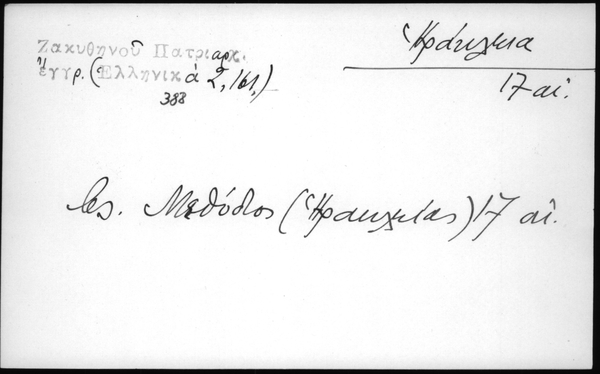 Ζακυθηνοῦ Πατριαρκ.
ἔγγρ. (Ἑλληνικά 2, 161,)
388
Ἡράκλεια
17 αἰ.
βλ. Μεθόδιος (Ἡρακλείας) 17 αἰ.